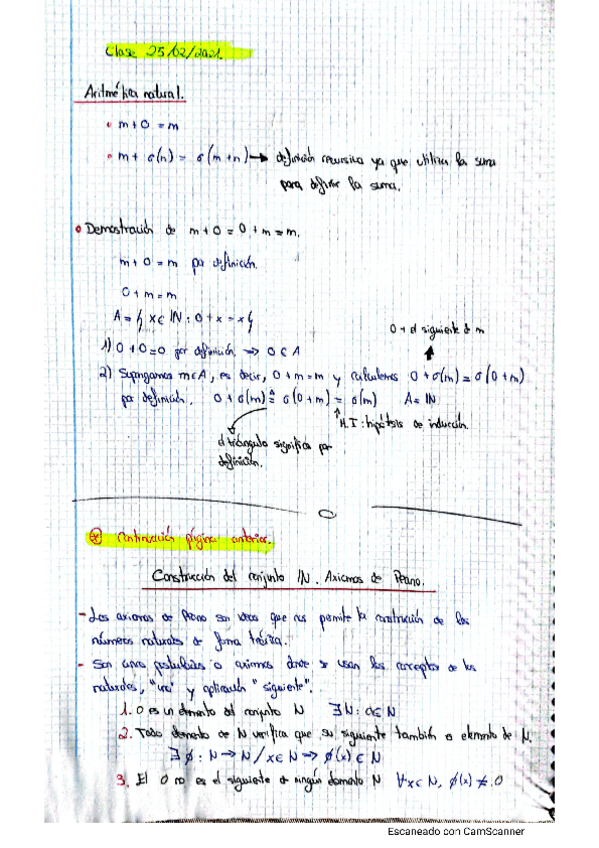 Clase 25/02/2021
Aritmética natural.
• m+0=m
• m+ σ(n) = σ(m+n) → definición recursiva ya que utiliza la suma
para definir la suma.
• Demostración de m+0=0+m=m.
m+0=m por definición.
0+m=m
A={x∈ℕ: 0+x=x}
0+el siguiente de m
1) 0+0=0 por definición → 0∈A
2) Supongamos m∈A, es decir, 0+m=m y calculemos 0+σ(m)=σ(0+m)
por definición. 0+σ(m)≙σ(0+m)=σ(m) A=ℕ
H.I: hipótesis de inducción.
el triángulo significa por
definición.
Continuación página anterior.
Construcción del conjunto ℕ. Axiomas de Peano.
- Los axiomas de Peano son que nos permite la construcción de los
números naturales de forma teórica.
- Son cinco postulados o axiomas donde se usan los conceptos de los
naturales, "uno" y aplicación "siguiente".
1. 0 es un elemento del conjunto N ∃N: 0∈N
2. Todo elemento de N verifica que su siguiente también es elemento de N.
∃ φ: N→N / x∈N → φ(x)∈N
3. El 0 no es el siguiente de ningún elemento N ∀x∈N, φ(x)≠0
Escaneado con CamScanner